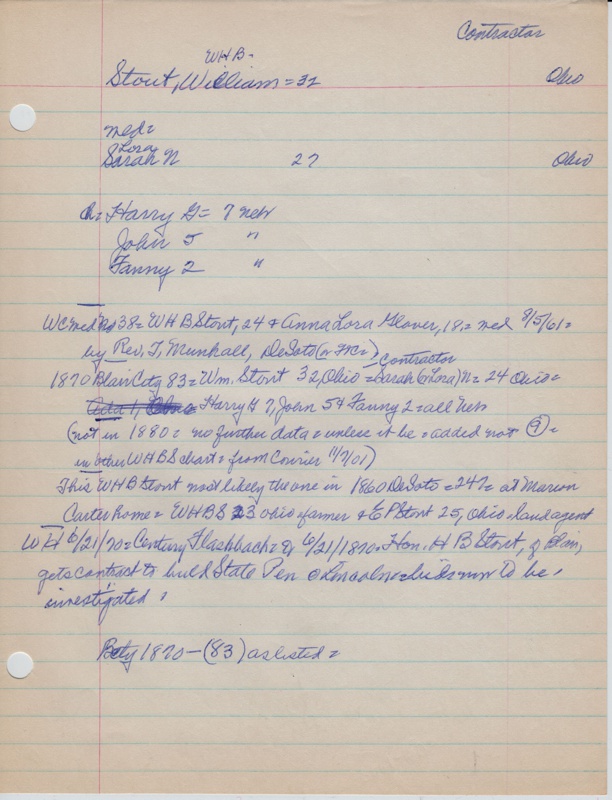 Contractor
WHB-
Stout, William = 32 Ohio
med=
Lora
Sarah N 27 Ohio
ch= Harry G = 7 neb
John 5 "
Fanny 2 "
WC med No 38 = WHB Stout, 24 & Anna Lora Glover, 18, = med 8/5/61=
by Rev. T. Munhall, DeSoto (or
Contractor
1870 Blair City 83 = Wm. Stout 32, Ohio = Sarah (or Lora) N = 24 Ohio =
Ada 1, Harry G 7, John 5 & Fanny 2 = all neb
(not in 1880 = no further data = unless it be = added not 9 =
in other WHBS chart = from Courier 11/7/01)
This WHB Stout most likely the one in 1860 DeSoto = 247 = at Marion
Carter home = WHBS 23 Ohio farmer & EP Stout 25, Ohio land agent
WH 6/21/70 = Century Flashback = of 6/21/1870 = Hon. H B Stout, of Blair,
gets contract to build State Pen @ Lincoln = bids now to be
investigated =
Bcty 1870 - (83) as listed =